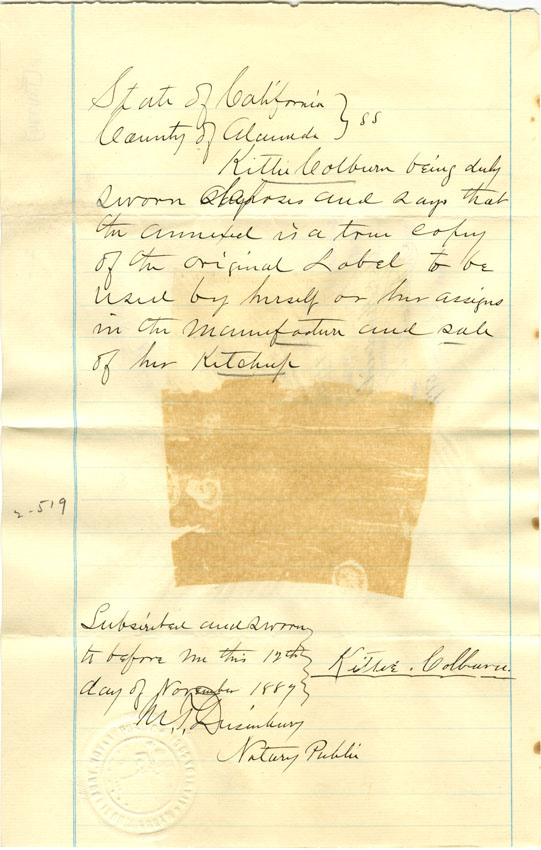 State of California } ss
County of Alameda
Kittie Colburn being duly
sworn deposes and says that
the annexed is a true copy
of the original Label to be
used by herself or her assigns
in the manufacture and sale
of her Ketchup
2-519
Subscribed and sworn
to before me this 12th } Kittie Colburn.
day of November 1887
M. T. Dusinbury
Notary Public